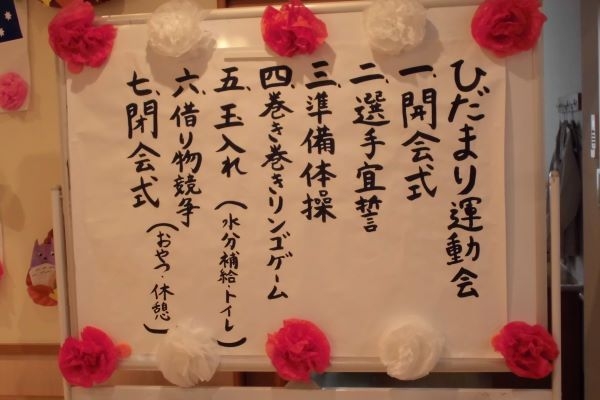 ひだまり運動会
一、開会式
二、選手宣誓
三、準備体操
四、巻き巻きリンゴゲーム
五、玉入れ（水分補給・トイレ）
六、借り物競争
七、閉会式（おやつ・休憩）